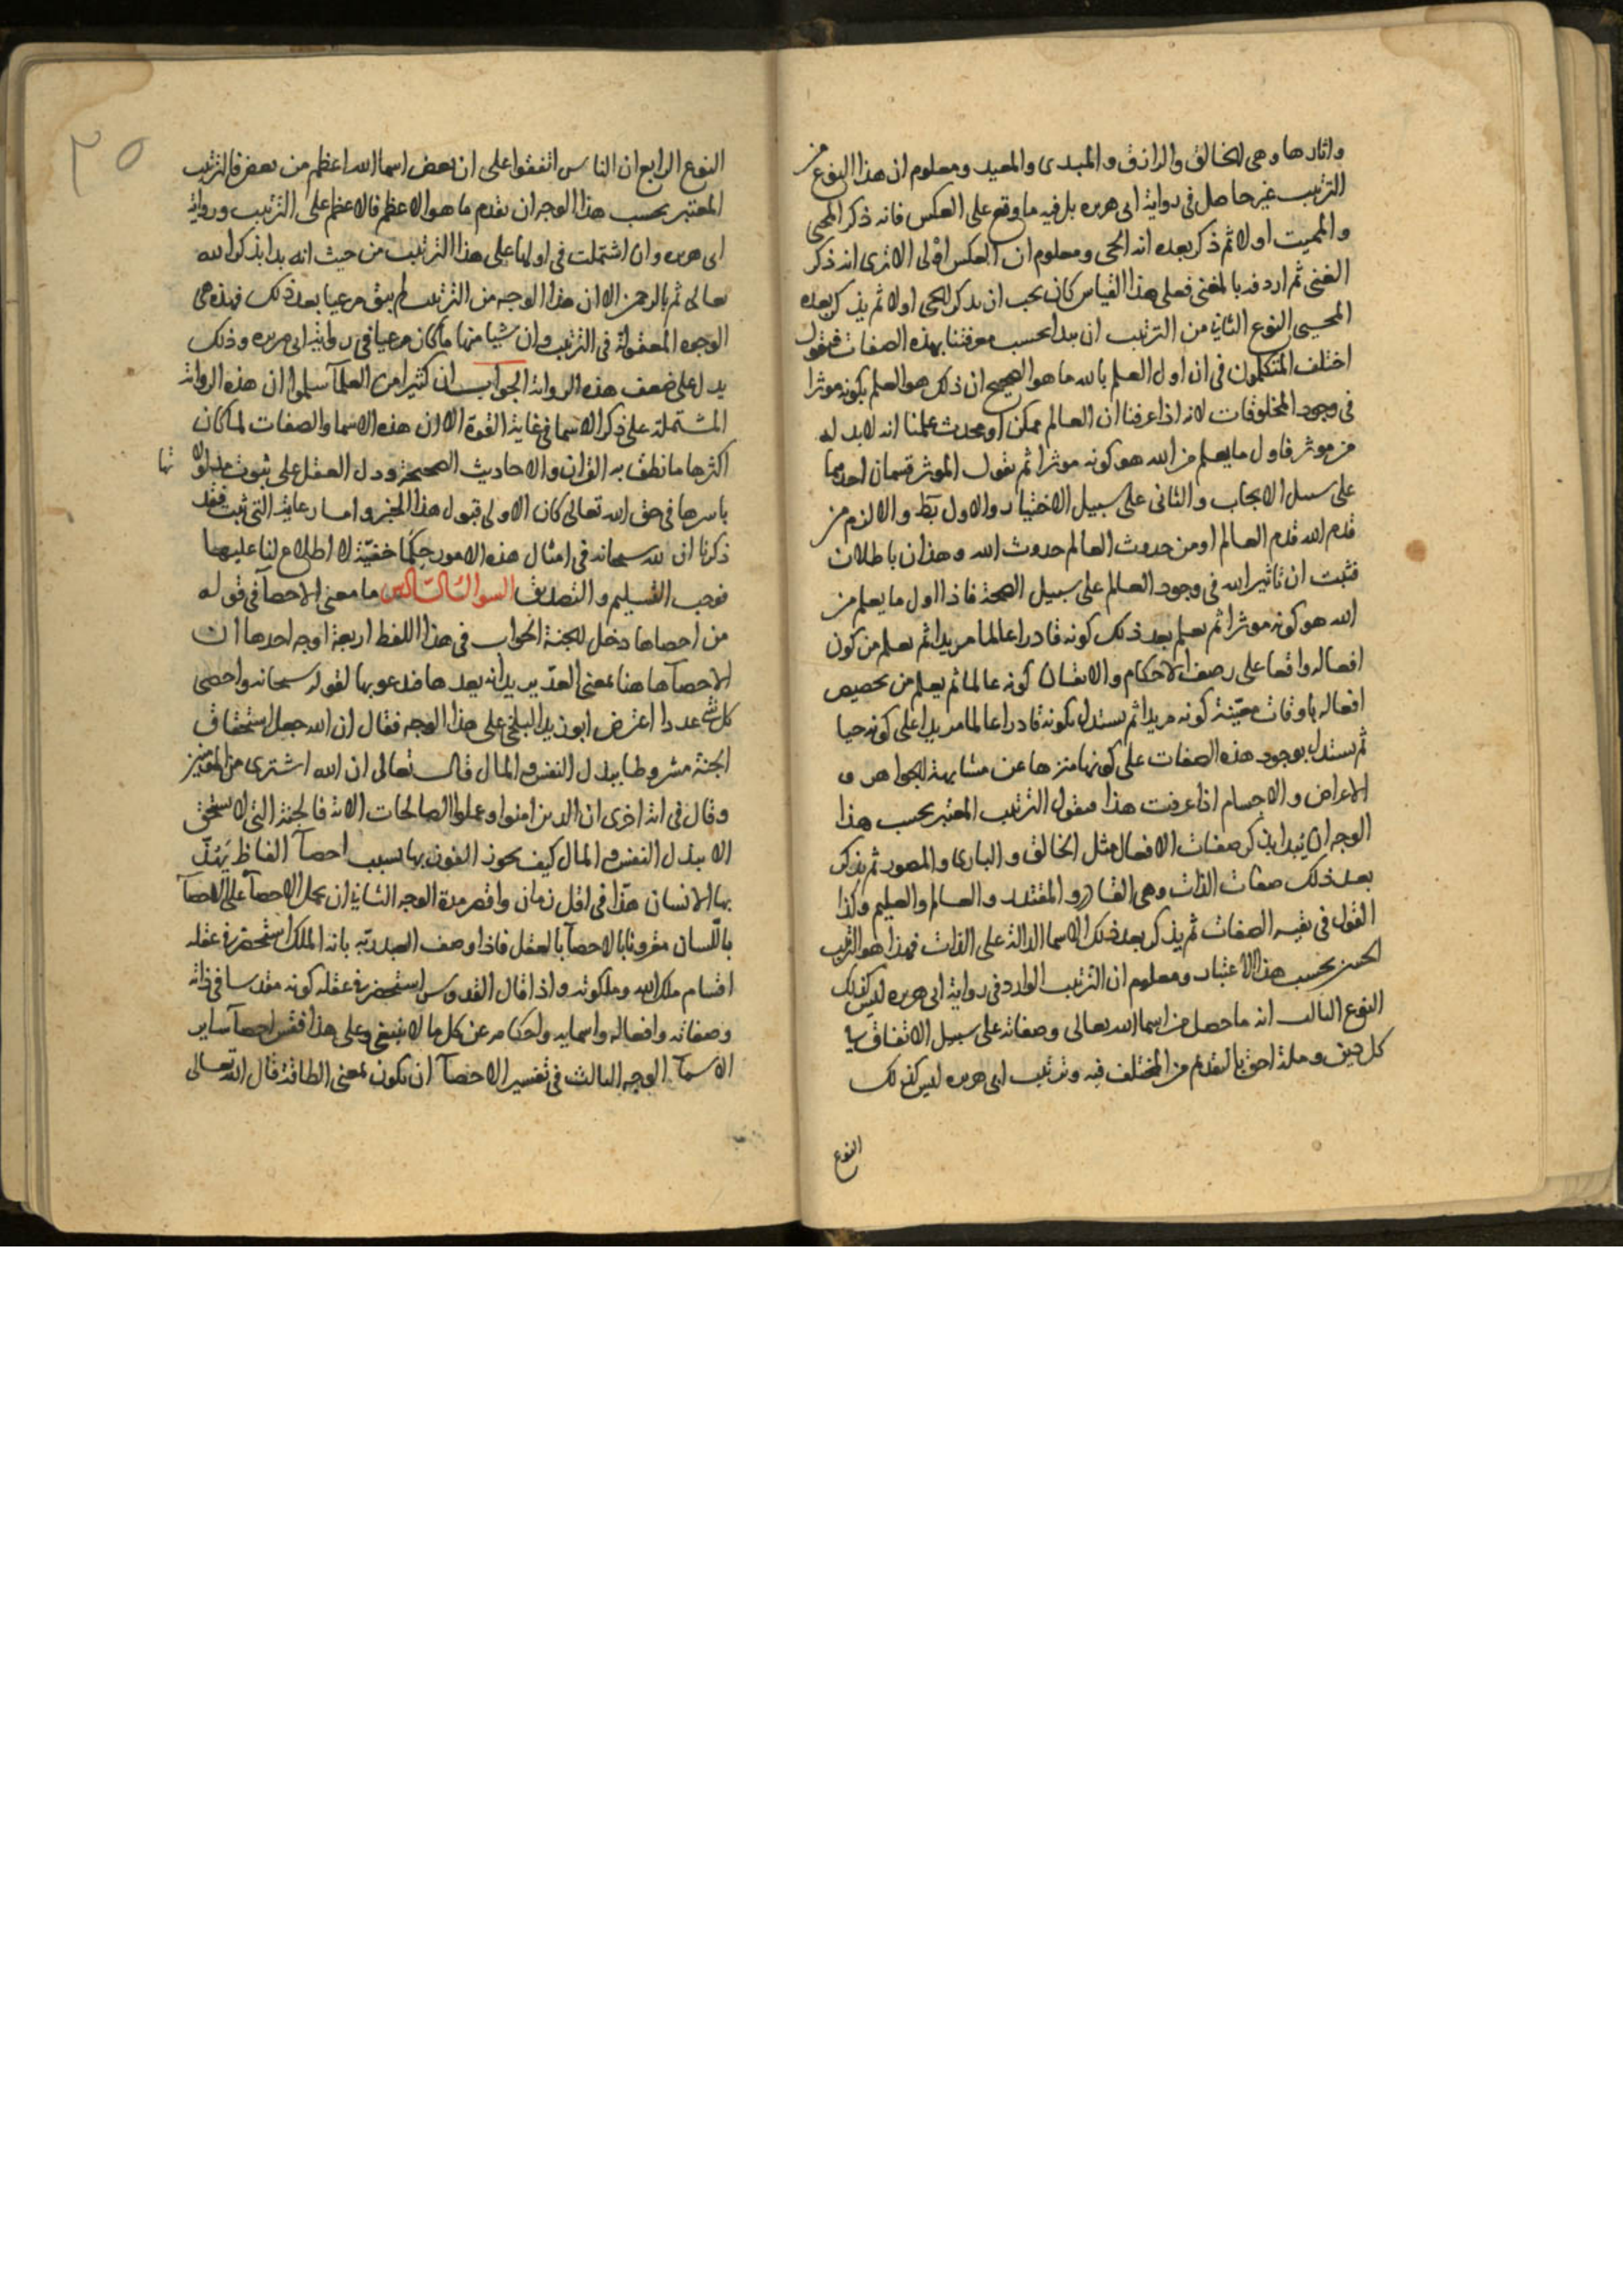 واثارها وهى الخالق والرازق والمبدى والمعيد ومعلوم ان هذا النوع من
الترتيب غير حاصل فى رواية ابى هريره بل فيه ما وقع على العكس فانه ذكر المحيى
والمميت اولا ثم ذكر بعده انه الحى ومعلوم ان العكس اولى الا ترى انه ذكر
الغنى ثم اردفه بالمغنى فعلى هذا القياس كان يجب ان يذكر الحى اولا ثم يذكر بعده
المحيى النوع الثانى من الترتيب ان يبدا بحسب معرفتنا بهذه الصفات فنقول
اختلف المتكلمون فى ان اول العلم بالله ما هو الصحيح ان ذلك هو العلم بكونه موثرا
فى وجود المخلوقات لانه اذا عرفنا ان العالم ممكن او محدث علمنا انه لابد له
من موثر فاول ما يعلم من الله هو كونه موثرا ثم نقول الموثر قسمان احدهما
على سبيل الايجاب والثانى على سبيل الاختيار والاول بط والا لزم من
قدم الله قدم العالم او من حدوث العالم حدوث الله وهذان باطلان
فثبت ان تاثير الله فى وجود العالم على سبيل الصحة فاذا اول ما يعلم من
الله هو كونه موثرا ثم يعلم بعد ذلك كونه قادرا عالما مريدا ثم نعلم من كون
افعاله واقعا على رصف الاحكام والاتقان كونه عالما ثم يعلم من تخصيص
افعاله باوقات معينة كونه مريدا ثم يستدل بكونه قادرا عالما مريدا على كونه حيا
ثم يستدل بوجود هذه الصفات على كونها منزها عن مشابهة الجواهر و
الاعراض والاجسام اذا عرفت هذا فنقول الترتيب المعتبر بحسب هذا
الوجه ان يبدا بذكر صفات الافعال مثل الخالق والبارى والمصور ثم يذكر
بعد ذلك صفات الذات وهى القادر والمقتدر والعالم والعليم وكذا
القول فى بقيه الصفات ثم يذكر بعد ذلك الاسما الدالة على الذات فهذا هو الترتيب
الحسن بحسب هذا الاعتبار ومعلوم ان الترتيب الوارد فى رواية ابى هريره ليس كذلك
النوع الثالث انه ما حصل من اسما الله تعالى وصفاته على سبيل الاتفاق فى
كل حين وملة احق بالتقديم من المختلف فيه وترتيب ابى هريره ليس كذلك
النوع
٣٥
النوع الرابع ان الناس اتفقوا على ان بعض اسما الله اعظم من بعض فالترتيب
المعتبر بحسب هذا الوجه ان يقدم ما هو الاعظم فالاعظم على الترتيب ورواية
ابى هريره وان اشتملت فى اولها على هذا الترتيب من حيث انه بدا بذكر الله
تعالى ثم بالرحمن الا ان هذا الوجه من الترتيب لم يبق مرعيا بعد ذلك فهذه هى
الوجوه المعقولة فى الترتيب وان شيا منها ما كان مرعيا فى رواية ابى هريره وذلك
يدل على ضعف هذه الرواية الجواب ان كثيرا من العلمآ سلموا ان هذه الرواية
المشتملة على ذكر الاسما فى غاية القوة الا ان هذه الاسما والصفات لما كان
اكثرها ما نطق به القران والاحاديث الصحيحة ودل العقل على ثبوت مدلولا تها
باسرها فى حق الله تعالى كان الاولى قبول هذا الخبر واما رعاية الترتيب فقد
ذكرنا ان لله سبحانه فى امثال هذه الامور حكما خفية لا اطلاع لنا عليها
فوجب التسليم والتصديق السوال الثالث ما معنى الاحصآ فى قوله
من احصاها دخل الجنة الجواب فى هذا اللفظ اربعة اوجه احدها ان
الاحصآ هاهنا بمعنى العد يريد انه يعدها فدعو بها لقوله سبحانه واحصى
كل شى عددا اعترض ابو زيد البلخى على هذا الوجه فقال ان الله جعل استحقاق
الجنة مشروطا ببذل النفس والمال قال تعالى ان الله اشترى من المومنين
وقال فى اية اخرى ان الذين امنوا وعملوا الصالحات الاية فالجنة التى لا تستحق
الا ببذل النفس والمال كيف يجوز الفوز بها بسبب احصآ الفاظ يعد
بها الانسان هذا فى اقل زمان واقصر مدة الوجه الثانى ان يحمل الاحصآ على الاحصآ
باللسان مقرونا بالاحصآ بالعقل فاذا وصف العبد ربه بانه الملك استحضر فى عقله
اقسام ملك الله وملكوته واذا قال القدوس استحضر فى عقله كونه مقدسا فى ذاته
وصفاته وافعاله واسمايه واحكامه عن كل ما لا ينبغى وعلى هذا فقس احصآ ساير
الاسمآ الوجه الثالث فى تفسير الاحصآ ان يكون بمعنى الطاقة قال الله تعالى